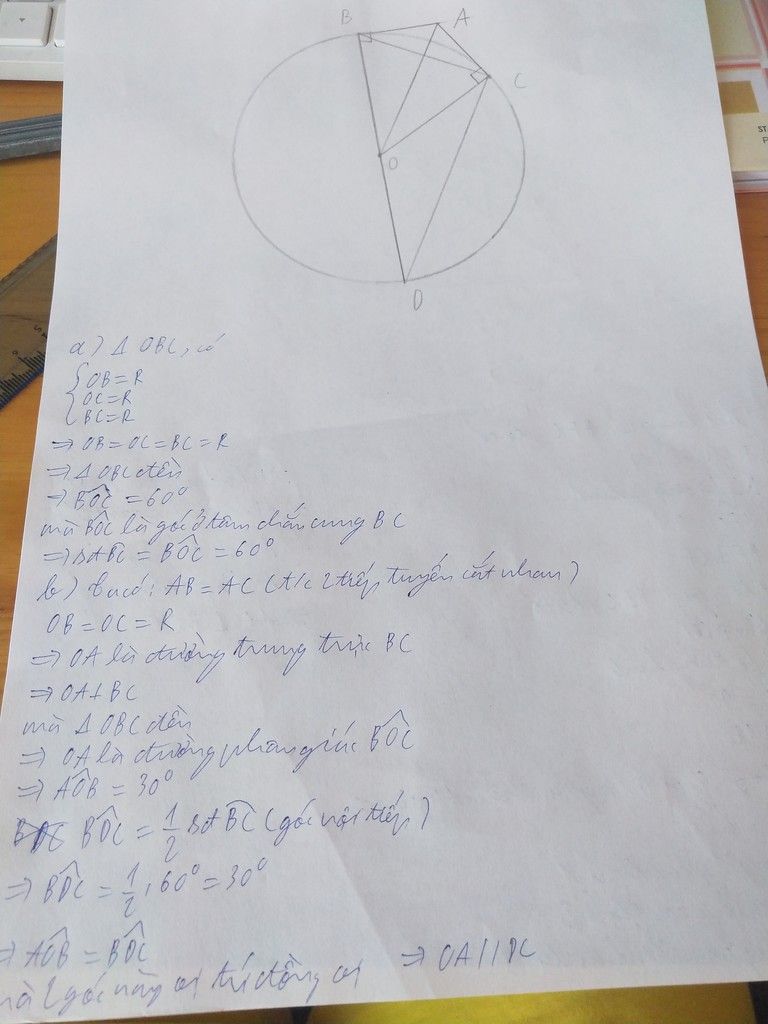 B
A
C
O
D
ST
P
a) Δ OBC, có
OB = R
OC = R
BC = R
⇒ OB = OC = BC = R
⇒ Δ OBC đều
⇒ BOC = 60°
mà BOC là góc ở tâm chắn cung BC
⇒ sđ BC = BOC = 60°
b) ta có: AB = AC (t/c 2 tiếp tuyến cắt nhau)
OB = OC = R
⇒ OA là đường trung trực BC
⇒ OA ⊥ BC
mà Δ OBC đều
⇒ OA là đường phân giác BOC
⇒ AOB = 30°
BDC = 1/2 sđ BC (góc nội tiếp)
⇒ BDC = 1/2 . 60° = 30°
⇒ AOB = BDC ⇒ OA // DC
mà 2 góc này vị trí đồng vị